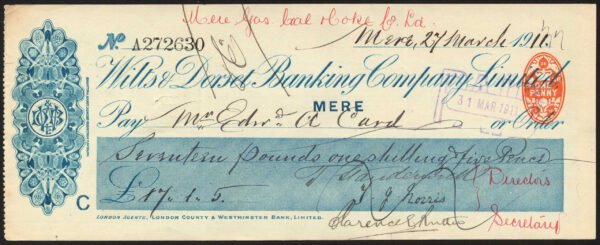 Mere Gas Coal & Coke Co. Ld.
No A272630
Mere, 27 March 1911
Wilts & Dorset Banking Company Limited
MERE
PENNY
31 MAR 1911
Pay Mr Edwd. A Card or Order
Seventeen Pounds one shilling Five Pence
£17.1.5.
J. J. Norris
Directors
C
Clarence
Secretary
LONDON AGENTS, LONDON COUNTY & WESTMINSTER BANK, LIMITED.